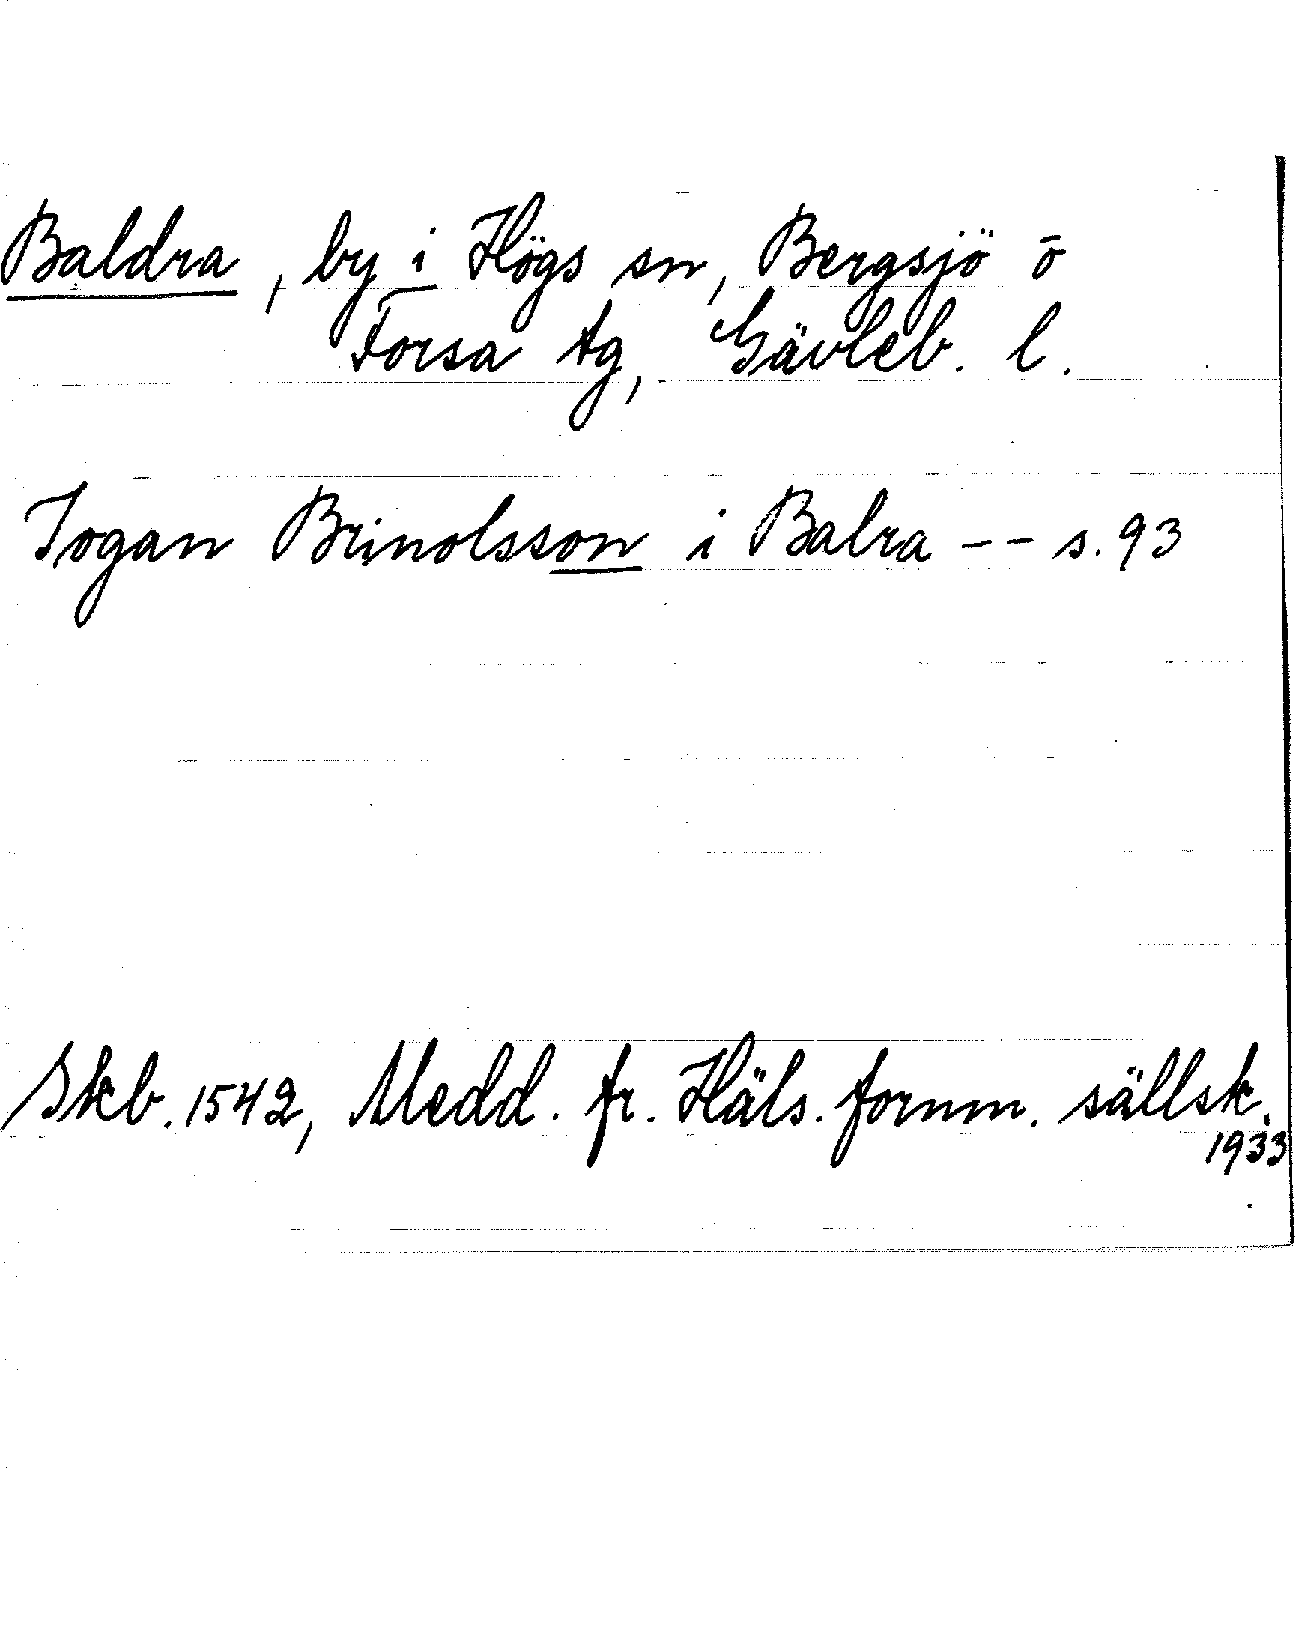 Baldra, by i Högs sn, Bergsjö o
Forsa tg, Gävleb. l.
Jogan Brinolsson i Balra -- s. 93
Skb. 1542, Medd. fr. Häls. fornm. sällsk.
1933